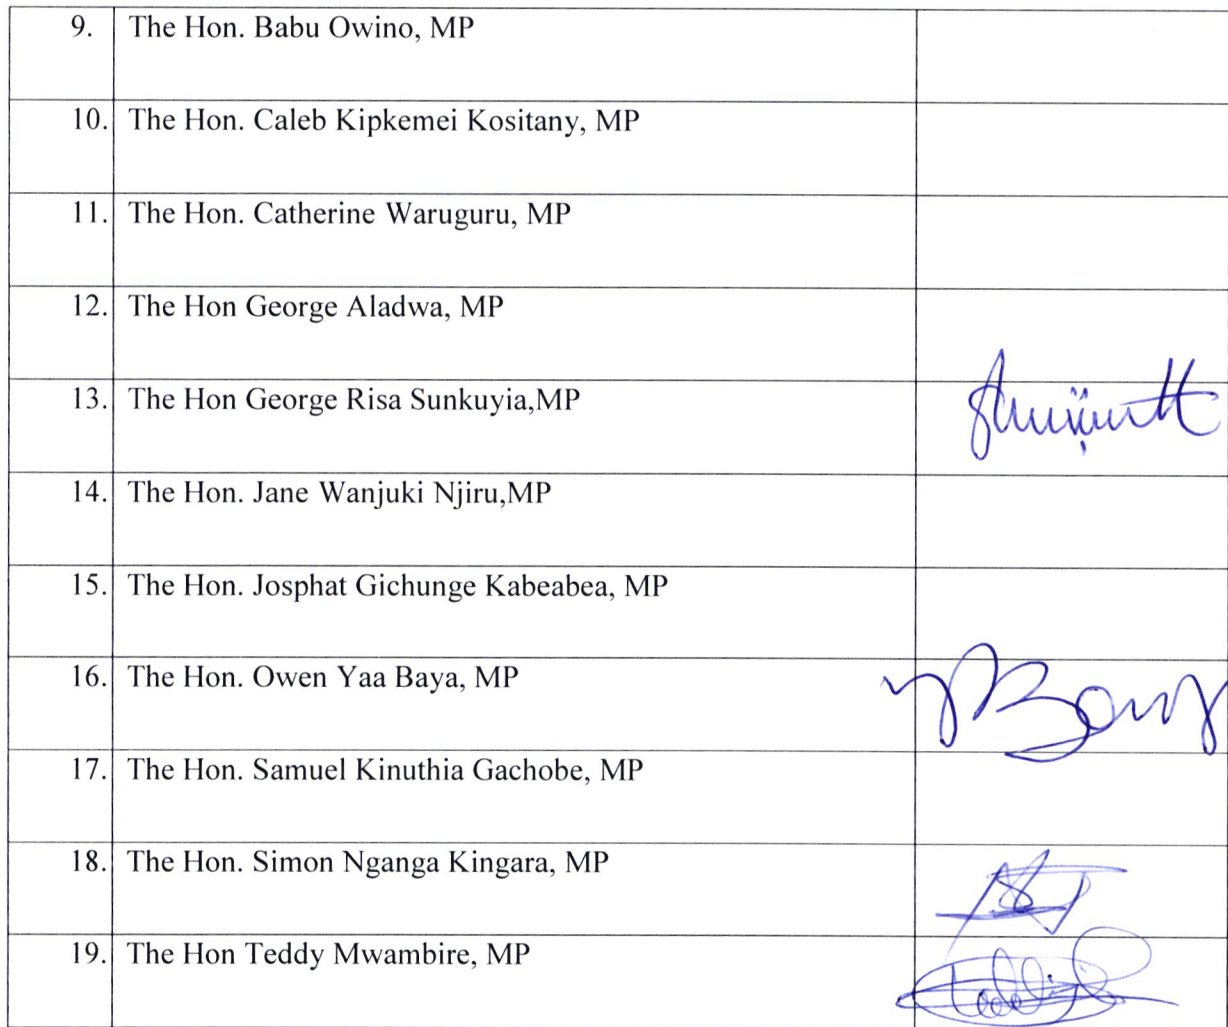 9. The Hon. Babu Owino, MP
10. The Hon. Caleb Kipkemei Kositany, MP
11. The Hon. Catherine Waruguru, MP
12. The Hon George Aladwa, MP
13. The Hon George Risa Sunkuyia,MP
14. The Hon. Jane Wanjuki Njiru,MP
15. The Hon. Josphat Gichunge Kabeabea, MP
16. The Hon. Owen Yaa Baya, MP
17. The Hon. Samuel Kinuthia Gachobe, MP
18. The Hon. Simon Nganga Kingara, MP
19. The Hon Teddy Mwambire, MP